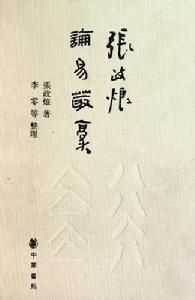 張政烺
論易叢稾
張政烺 著
李零等 整理
中華書局